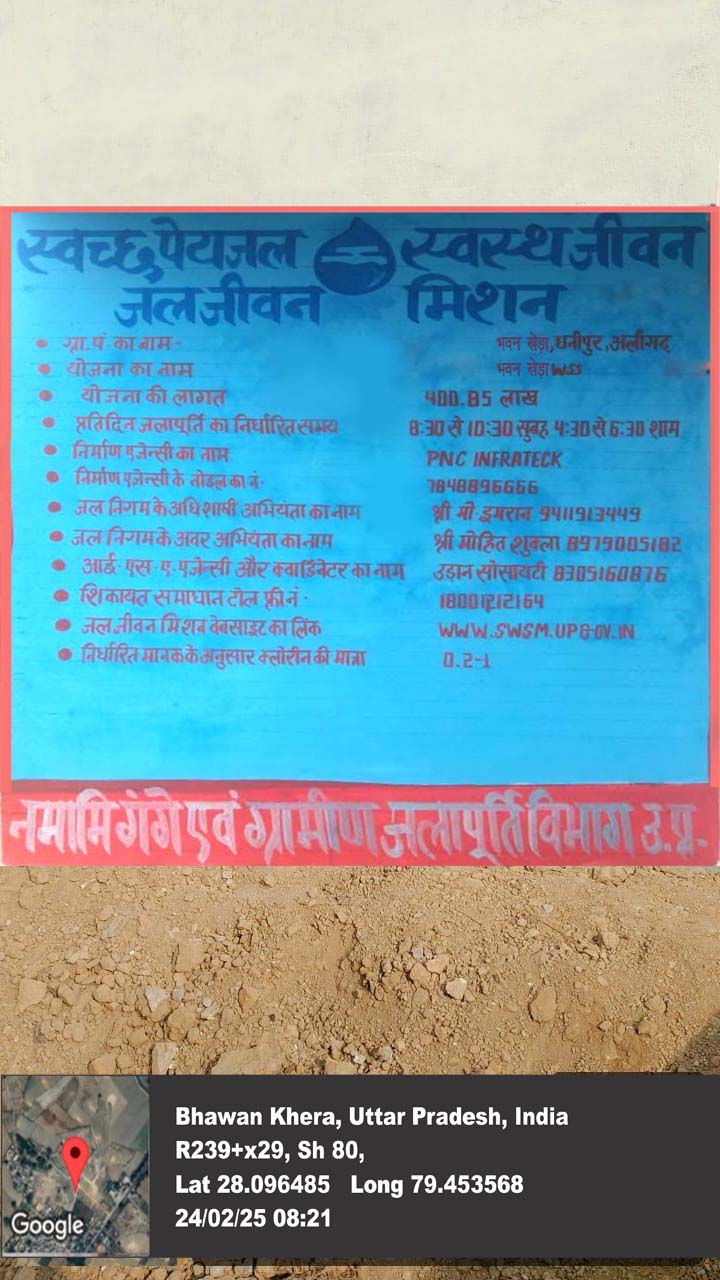 स्वच्छ पेयजल स्वस्थ जीवन
जल जीवन मिशन
ग्रा.पं. का नाम - भवन खेड़ा, धनीपुर, अलीगढ़
योजना का नाम भवन खेड़ा WSS
योजना की लागत 400.85 लाख
प्रतिदिन जलापूर्ति का निर्धारित समय 8:30 से 10:30 सुबह 4:30 से 6:30 शाम
निर्माण एजेन्सी का नाम PNC INFRATECK
निर्माण एजेन्सी के नोडल का नं. 7848896666
जल निगम के अधिशाषी अभियंता का नाम श्री मो. इमरान 9411913449
जल निगम के अवर अभियंता का नाम श्री मोहित शुक्ला 8979005182
आई. एस. ए. एजेन्सी और क्वार्डिनेटर का नाम उड़ान सोसायटी 8305160876
शिकायत समाधान टोल फ्री नं. 18001212164
जल जीवन मिशन वेबसाइट का लिंक WWW.SWSM.UPGOV.IN
निर्धारित मानक के अनुसार क्लोरीन की मात्रा 0.2-1
नमामि गंगे एवं ग्रामीण जलापूर्ति विभाग उ.प्र.
Bhawan Khera, Uttar Pradesh, India
R239+x29, Sh 80,
Lat 28.096485 Long 79.453568
24/02/25 08:21
Google